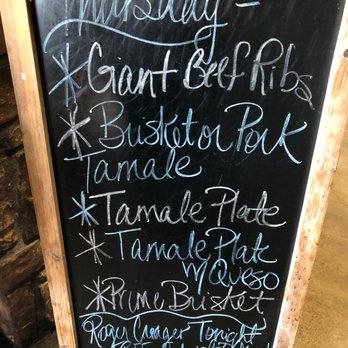 Thursday -
* Giant Beef Ribs
* Busket or Pork
Tamale
* Tamale Plate
* Tamale Plate
w/ Queso
* Prime Brisket
Roger Creager Tonight